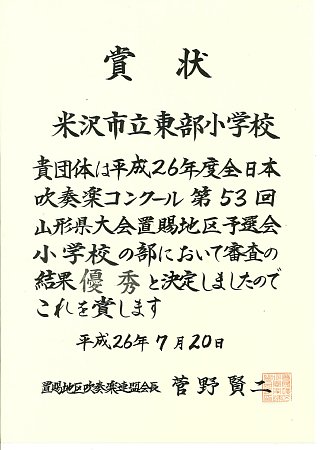 賞状
米沢市立東部小学校
貴団体は平成26年度全日本
吹奏楽コンクール第53回
山形県大会置賜地区予選会
小学校の部において審査の
結果優秀と決定しましたので
これを賞します
平成26年7月20日
置賜地区吹奏楽連盟会長 菅野賢二